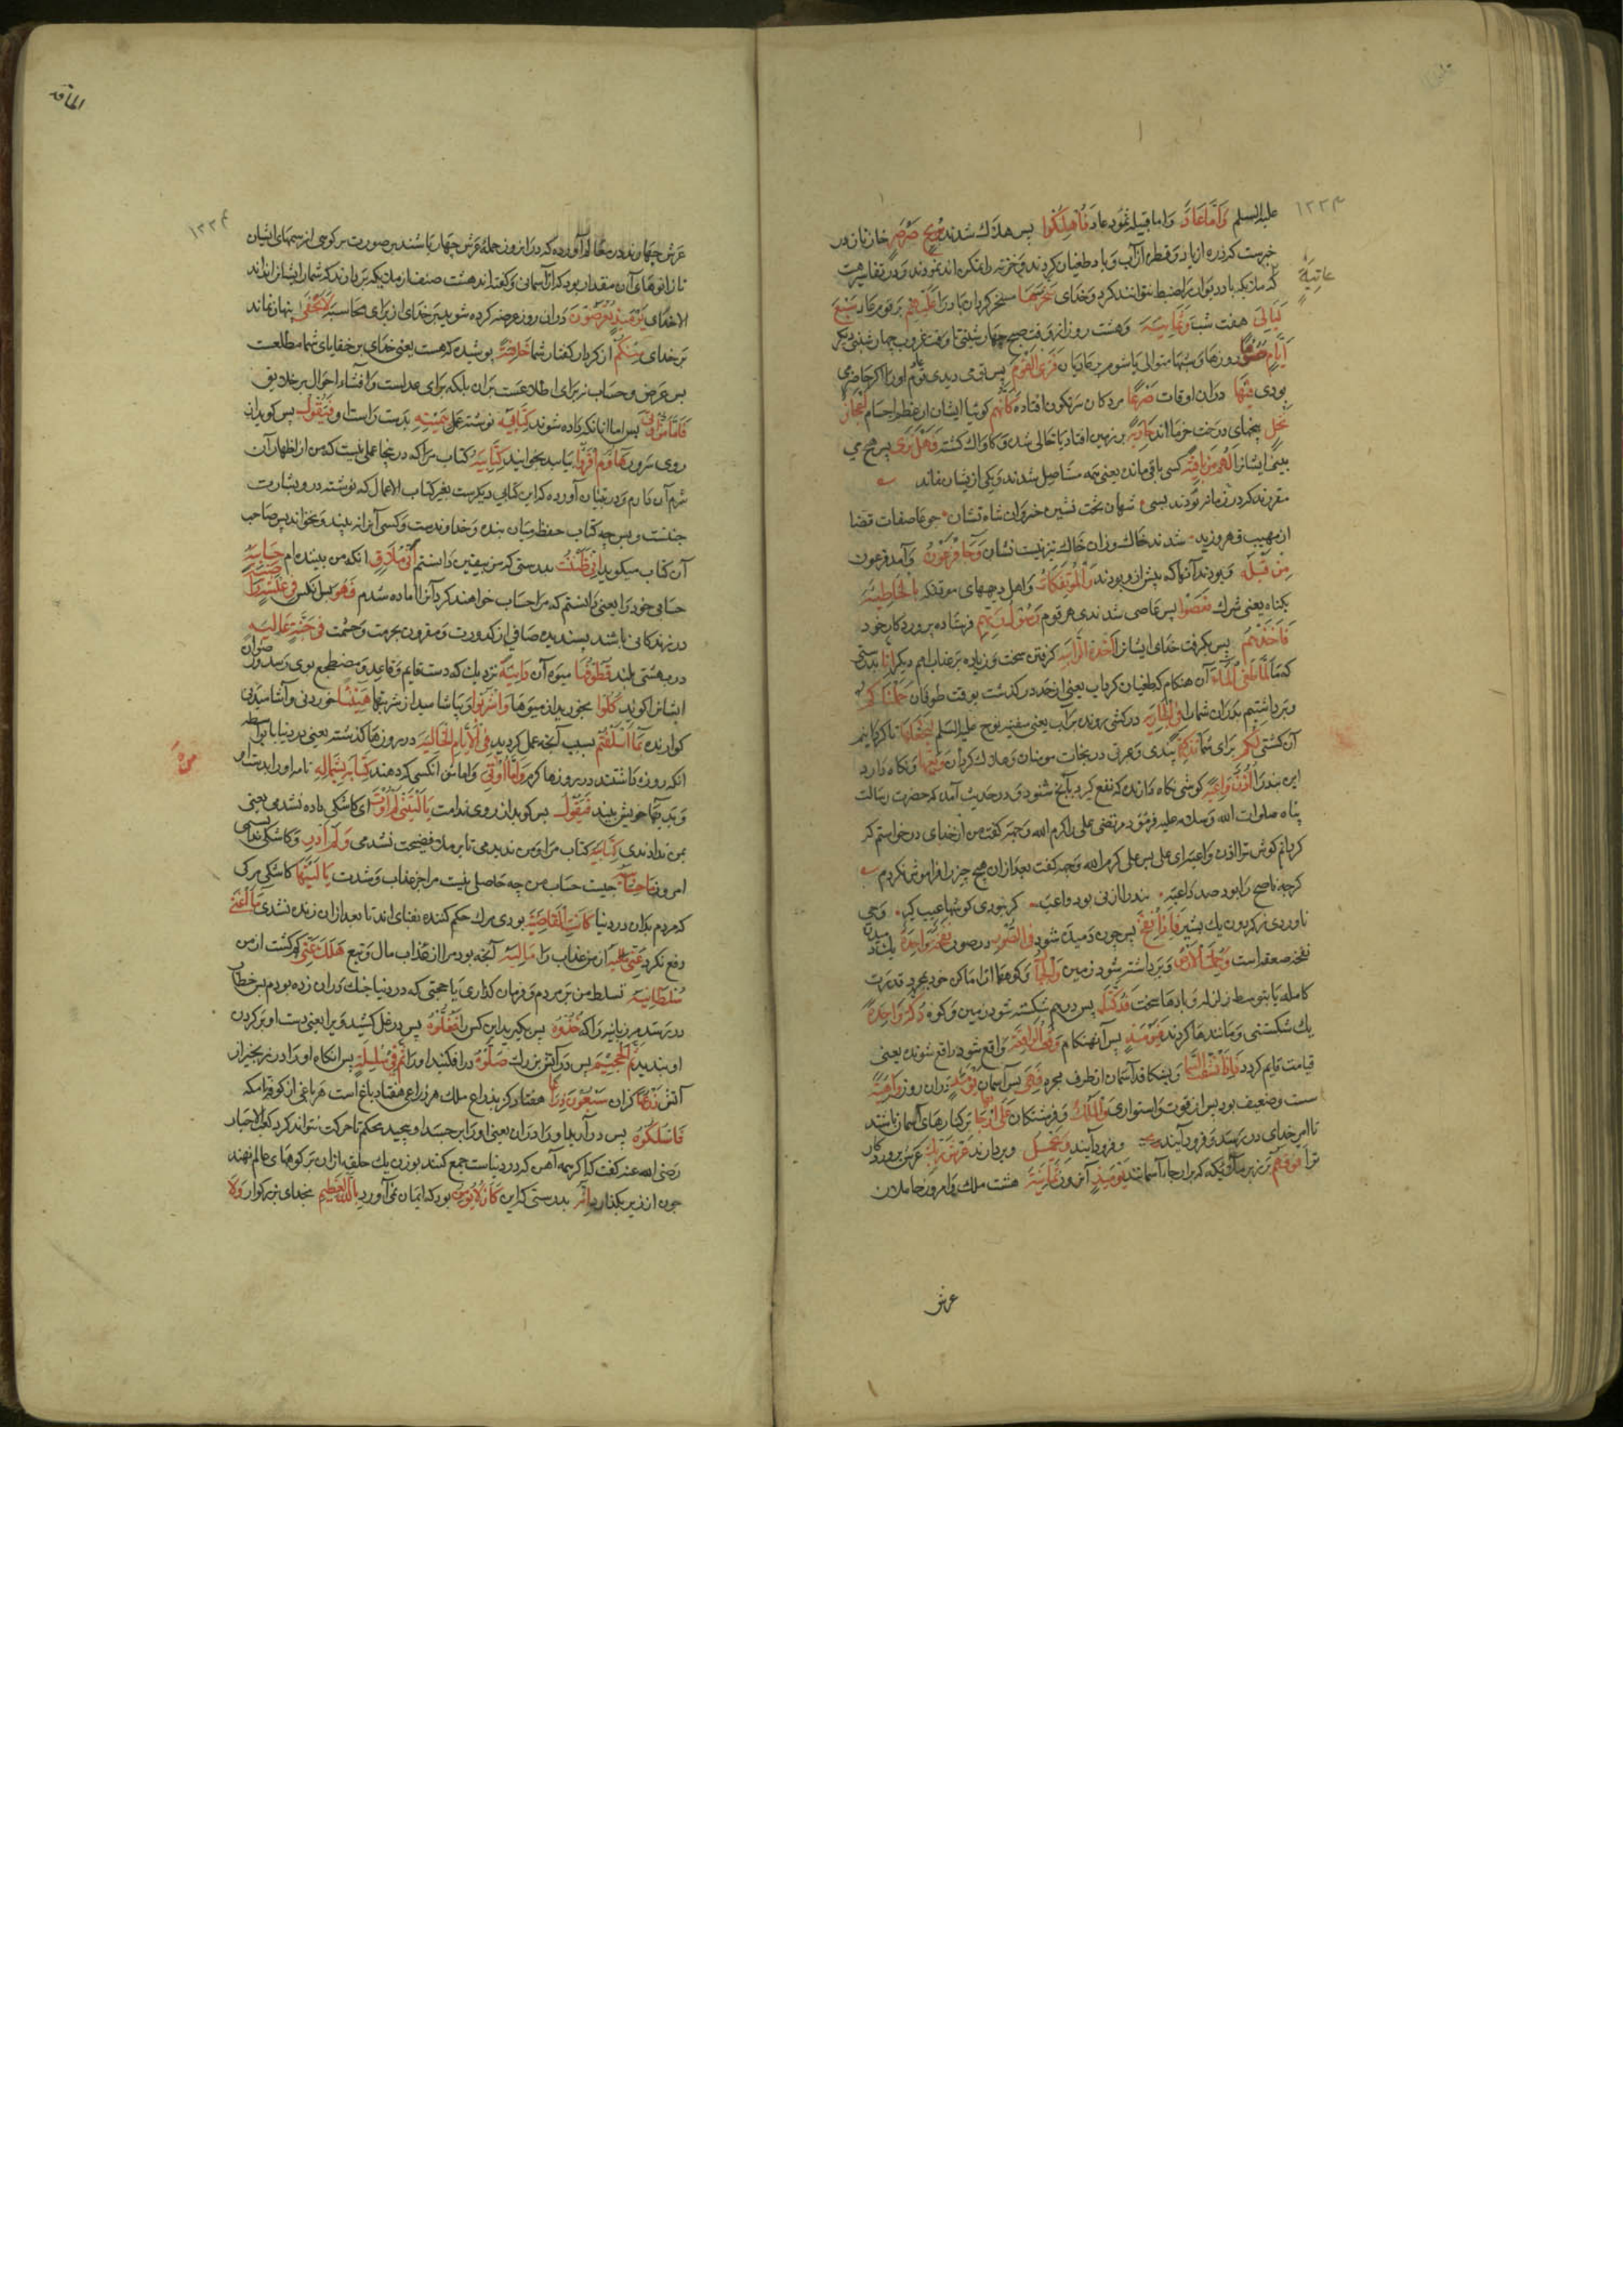 علیه السلم وَاَمَّا عَادٌ واما قبیله ثمود عاد فَاُهْلِکُوا پس هلاک شدند بِرِیحٍ صَرْصَرٍ
خبرست که ذره از باد و قطره از آب و باد طغیان کردند و
عَاتِیَةٍ
که ملائیکه باد را ضبط نتوانند کرد و خدای سَخَّرَهَا مسخر کردان باد را عَلَیْهِمْ بر قوم عاد سَبْعَ
لَیَالٍ هفت شب وَثَمَانِیَةَ و هشت روز از وقت صبح چهار شنبه تا وقت غروب چهار شنبه دیکر
اَیَّامٍ حُسُومًا روزها و شبها متوالی یا شوم بر عادیان فَتَرَی الْقَوْمَ پس تو می دیدی قوم او را اکر حاضر می
بودی فِیهَا دران اوقات صَرْعَی مردکان سرنکون افتاده کَاَنَّهُمْ کوئیا ایشان از عظم اجسام اَعْجَازُ
نَخْلٍ بیخهای درخت خرمااند خَاوِیَةٍ بر زمین افتاده یا خالی شده و کاواک کشته فَهَلْ تَرَی پس هیچ می
بینی ایشانرا لَهُمْ مِنْ بَاقِیَةٍ کسی باقی مانده یعنی همه مستاصل شدند و یکی از یشان نماند
مقررند که در زمانه بودند بسی شهان تخت نشین خسروان شاه نشان چو عاصفات قضا
از مهب قهر وزید شدند خاک و زان خاک نیز نیست نشان وَجَاءَ فِرْعَوْنُ و آمد فرعون
مِنْ قَبْلَهُ و بودند آنها که پیش ازو بودند وَالْمُؤْتَفِکَاتُ و اهل دیههای موتفکه بِالْخَاطِئَةِ
بکناه یعنی شرک فَعَصَوْا پس عاصی شدند هر قوم رَسُولَ رَبِّهِمْ فرستاده پروردکار خود
فَاَخَذَهُمْ پس بکرفت خدای ایشانرا اَخْذَةً رَابِیَةً کرفتن سخت و زیاده بر عذاب امم دیکر اِنَّا بدرستی
که ما لَمَّا طَغَی الْمَاءُ آن هنکام که طغیان کرد آب یعنی از حد در کذشت بوقت طوفان حَمَلْنَاکُمْ
و برداشتیم پدران شما را فِی الْجَارِیَةِ در کشتی رونده بر آب یعنی سفینه نوح علیه السلم لِنَجْعَلَهَا تا کردانیم
آن کشتی لَکُمْ برای شما تَذْکِرَةً پندی و عبرتی در نجات مومنان و هلاک کردن وَتَعِیَهَا و نکاه دارد
این پند را اُذُنٌ وَاعِیَةٌ کوشی نکاه دارنده که نفع کیرد بانچه شنود و در حدیث آمده که حضرت رسالت
پناه صلوات الله و سلامه علیه فرمود مرتضی علی را کرم الله وجهه کفت من از خدای درخواستم که
کردانم کوش ترا اذن واعیه ای علی پس علی کرم الله وجهه کفت بعد ازان هیچ چیز را فراموش نکردم
کرچه ناصح را بود صد داعیه پند را اذنی بود واعیه کر نبودی کوشها غیب کیر وحی
ناوردی ز کردون یک بشیر فَاِذَا نُفِخَ پس چون دمیده شود فِی الصُّورِ در صور نَفْخَةٌ وَاحِدَةٌ یک دمیدن
نفخه صعقه است وَحُمِلَتِ الْاَرْضُ و برداشته شود زمین وَالْجِبَالُ و کوهها از اماکن خود بمجرد قدرت
کامله یا بتوسط زلزله و بادهای سخت فَدُکَّتَا پس درهم شکسته شود زمین و کوه دَکَّةً وَاحِدَةً
یک شکستنی و مانند هبا کردند فَیَوْمَئِذٍ پس آن هنکام وَقَعَتِ الْوَاقِعَةُ واقع شود واقع شونده یعنی
قیامت قایم کردد وَانْشَقَّتِ السَّمَاءُ و بشکافد آسمان از طرف مجره فَهِیَ پس آسمان یَوْمَئِذٍ دران روز وَاهِیَةٌ
سست و ضعیف بود پس از قوت و استواری وَالْمَلَکُ و فرشتکان عَلَی اَرْجَائِهَا بر کنارهای آسمان باشند
تا امر خدای در رسد و فرود آیند وَیَحْمِلُ و بردارند عَرْشَ رَبِّکَ عرش پروردکار
ترا فَوْقَهُمْ بر زبر ملائیکه که بر ارجاء آسمانند یَوْمَئِذٍ آن روز ثَمَانِیَةٌ هشت ملک و امروز حاملان
عرش
عرش چهارند در معالم آورده که دران روز حمله عرش چهار باشند بر صورت بز کوهی از سمهای ایشان
تا زانوهای آن مقدار بود که از آسمانی و کفته‌اند هشت صف از ملائیکه بردارند که شمار ایشانرا نداند
الا خدای یَوْمَئِذٍ تُعْرَضُونَ دران روز عرضه کرده شوید بر خدای از برای محاسبه لَا تَخْفَی پنهان نماند
بر خدای مِنْکُمْ از کردار و کفتار شما خَافِیَةٌ پوشیده که هست یعنی خدای بر خفایای شما مطلعست
پس عرض و حساب نه برای اطلاعست بران بلکه برای عدلست و افشاء احوال بر خلایق
فَاَمَّا مَنْ اُوتِیَ پس اما آنکه داده شوند کِتَابَهُ نوشته عمل بِیَمِینِهِ بدست راست او فَیَقُولُ پس کوید از
روی سرور هَاؤُمُ اقْرَؤُا بیایید بخوانید کِتَابِیَهْ کتاب مرا که درینجا عملی نیست که من از اظهار آن
شرم دارم و در تبیان آورده که این کتابی دیکرست بغیر کتاب الاعمال که نوشته درو بشارت
جنتست و بس چه کتاب حفظه میان بنده و خداوندست و کسی آنرا نه بیند و نخواند پس صاحب
آن کتاب میکوید اِنِّی ظَنَنْتُ بدرستی که من بیقین دانستم اَنِّی مُلَاقٍ انکه من بیننده‌ام حِسَابِیَهْ
حساب خود را یعنی دانستم که مرا حساب خواهند کرد آنرا اماده شدم فَهُوَ پس آنکس فِی عِیشَةٍ رَاضِیَةٍ
در زندکانی باشد پسندیده صافی از کدورت و مقرون بحرمت و حشمت فِی جَنَّةٍ عَالِیَةٍ
در بهشتی بلند قُطُوفُهَا میوه آن دَانِیَةٌ نزدیک که دست قایم و قاعد و مضطجع بوی رسد و رضوان
ایشانرا کوید کُلُوا بخورید از میوها وَاشْرَبُوا و بیاشامید از شربتها هَنِیئًا خوردنی و آشامیدنی
کوارنده بِمَا اَسْلَفْتُمْ بسبب آنچه عمل کردید فِی الْاَیَّامِ الْخَالِیَةِ در روزها کذشته یعنی در دنیا یا بواسطه
انکه روزه داشتند در روزها کرم وَاَمَّا مَنْ اُوتِیَ و اما من آنکسی که دهند کِتَابَهُ بِشِمَالِهِ نامه او را بدست
و بدیها خویش بیند فَیَقُولُ پس کوید از روی ندامت یَا لَیْتَنِی لَمْ اُوتَ ای کاشکی داده نشدمی یعنی
بمن ندادندی کِتَابِیَهْ کتاب مرا و من ندیدمی تا برملا فضیحت نشدمی وَلَمْ اَدْرِ و کاشکی ندانستمی
امروز مَا حِسَابِیَهْ چیست حساب من چه حاصلی نیست مرا جز عذاب و شدت یَا لَیْتَهَا کاشکی مرکی
که مردم بدان در دنیا کَانَتِ الْقَاضِیَةَ بودی مرک حکم کننده بفنای ابد تا بعد ازان زنده نشدی مَا اَغْنَی
دفع نکرد عَنِّی از من عذاب را مَالِیَهْ آنچه بود مرا از مال و تبع هَلَکَ عَنِّی کم کشت از من
سُلْطَانِیَهْ تسلط من بر مردم و فرمان کذاری یا حجتی که در دنیا چنک دران زده بودم پس خطاب
در رسد بزبانیه که خُذُوهُ پس بکیرید این کس را فَغُلُّوهُ پس در غل کشید ویرا یعنی دست او بر کردن
او بندید ثُمَّ الْجَحِیمَ پس در آتش بزرک صَلُّوهُ درافکنید او را ثُمَّ فِی سِلْسِلَةٍ پس انکاه او را در زنجیر از
آتش ذَرْعُهَا کزان سَبْعُونَ ذِرَاعًا هفتاد کز بذراع ملک هر ذراعی هفتاد باع است هر باعی از کوفه تا مکه
فَاسْلُکُوهُ پس درآرید او را دران یعنی او را بر جسد او پیچید محکم تا حرکت نتواند کرد کعب الاحبار
رضی الله عنه کفت که اکر همه آهن که در دنیاست جمع کنند بوزن یک حلقه ازان بر کوههای عالم نهند
چون ارزیز بکدازد اِنَّهُ بدرستی که این کَانَ لَا یُؤْمِنُ بود که ایمان نمی آورد بِاللهِ الْعَظِیمِ بخدای بزرکوار وَلَا